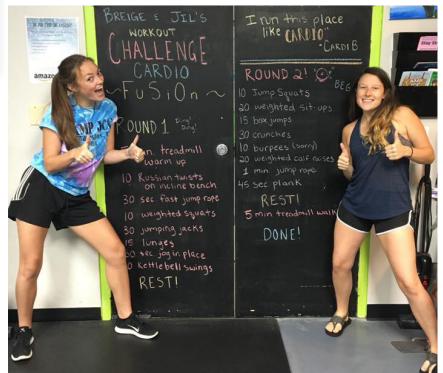 BREIGE & JIL'S
WORKOUT
CHALLENGE
CARDIO
~FuSiOn~
ROUND 1 Ding! Ding!
min. treadmill
warm up
10 Russian twists
on incline bench
30 sec fast jump rope
10 weighted squats
30 jumping jacks
15 lunges
sec jog in place
Kettlebell swings
REST!
I run this place
like "CARDIO"
-CARDI B
ROUND 2!
BEG
10 Jump Squats
20 weighted sit-ups
15 box jumps
30 crunches
10 burpees (sorry)
20 weighted calf raises
1 min. jump rope
45 sec plank
REST!
5 min treadmill walk
DONE!
amazon